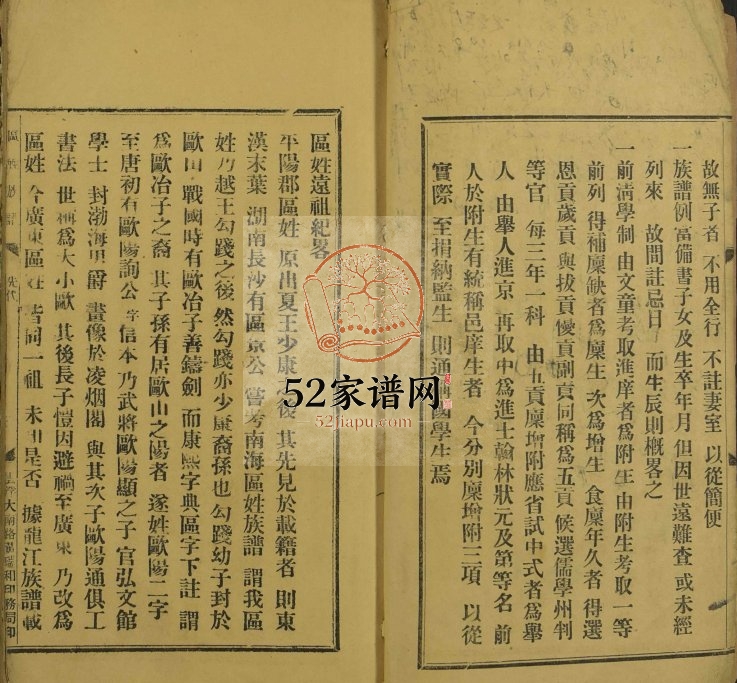 故無子者 不用全行 不註妻室 以從簡便
一族譜例當備書子女及生卒年月 但因世遠難查 或未經
列來 故間註忌日 而生辰則概畧之
一前清學制 由文童考取進庠者爲附生 由附生考取一等
前列 得補廩缺者爲廩生 次爲增生 食廩年久者 得選
恩貢歲貢 與拔貢優貢副貢同稱爲五貢 候選儒學州判
等官 每三年一科 由五貢廩增附應省試中式者爲舉
人 由舉人進京 再取中爲進士翰林狀元及第等名 前
人於附生有統稱邑庠生者 今分別廩增附三項 以從
實際 至捐納監生 則通 國學生焉
區姓遠祖紀畧
平陽郡區姓 原出夏王少康 後 其先見於載籍者 則東
漢末葉 湖南長沙有區 公 嘗考南海區姓族譜 謂我區
姓乃越王勾踐之後 然勾踐亦少康裔孫也 勾踐幼子封於
歐山 戰國時有歐冶子善鑄劍 而康熙字典區字下註 謂
爲歐冶子之裔 其子孫有居歐山之陽者 遂姓歐陽二字
至唐初有歐陽詢公 字信本 乃武將歐陽顯之子 官弘文館
學士 封渤海男爵 畫像於凌烟閣 與其次子歐陽通俱工
書法 世稱爲大小歐 其後長子愷因避禍至廣東 乃改爲
區姓 今廣東區姓 皆同一祖 未知是否 據龍江族譜載
先代
大南路 和印務局印
52家谱网
52jiapu.com